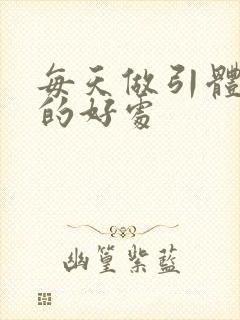 每天做引體
的好處
幽篁紫藍